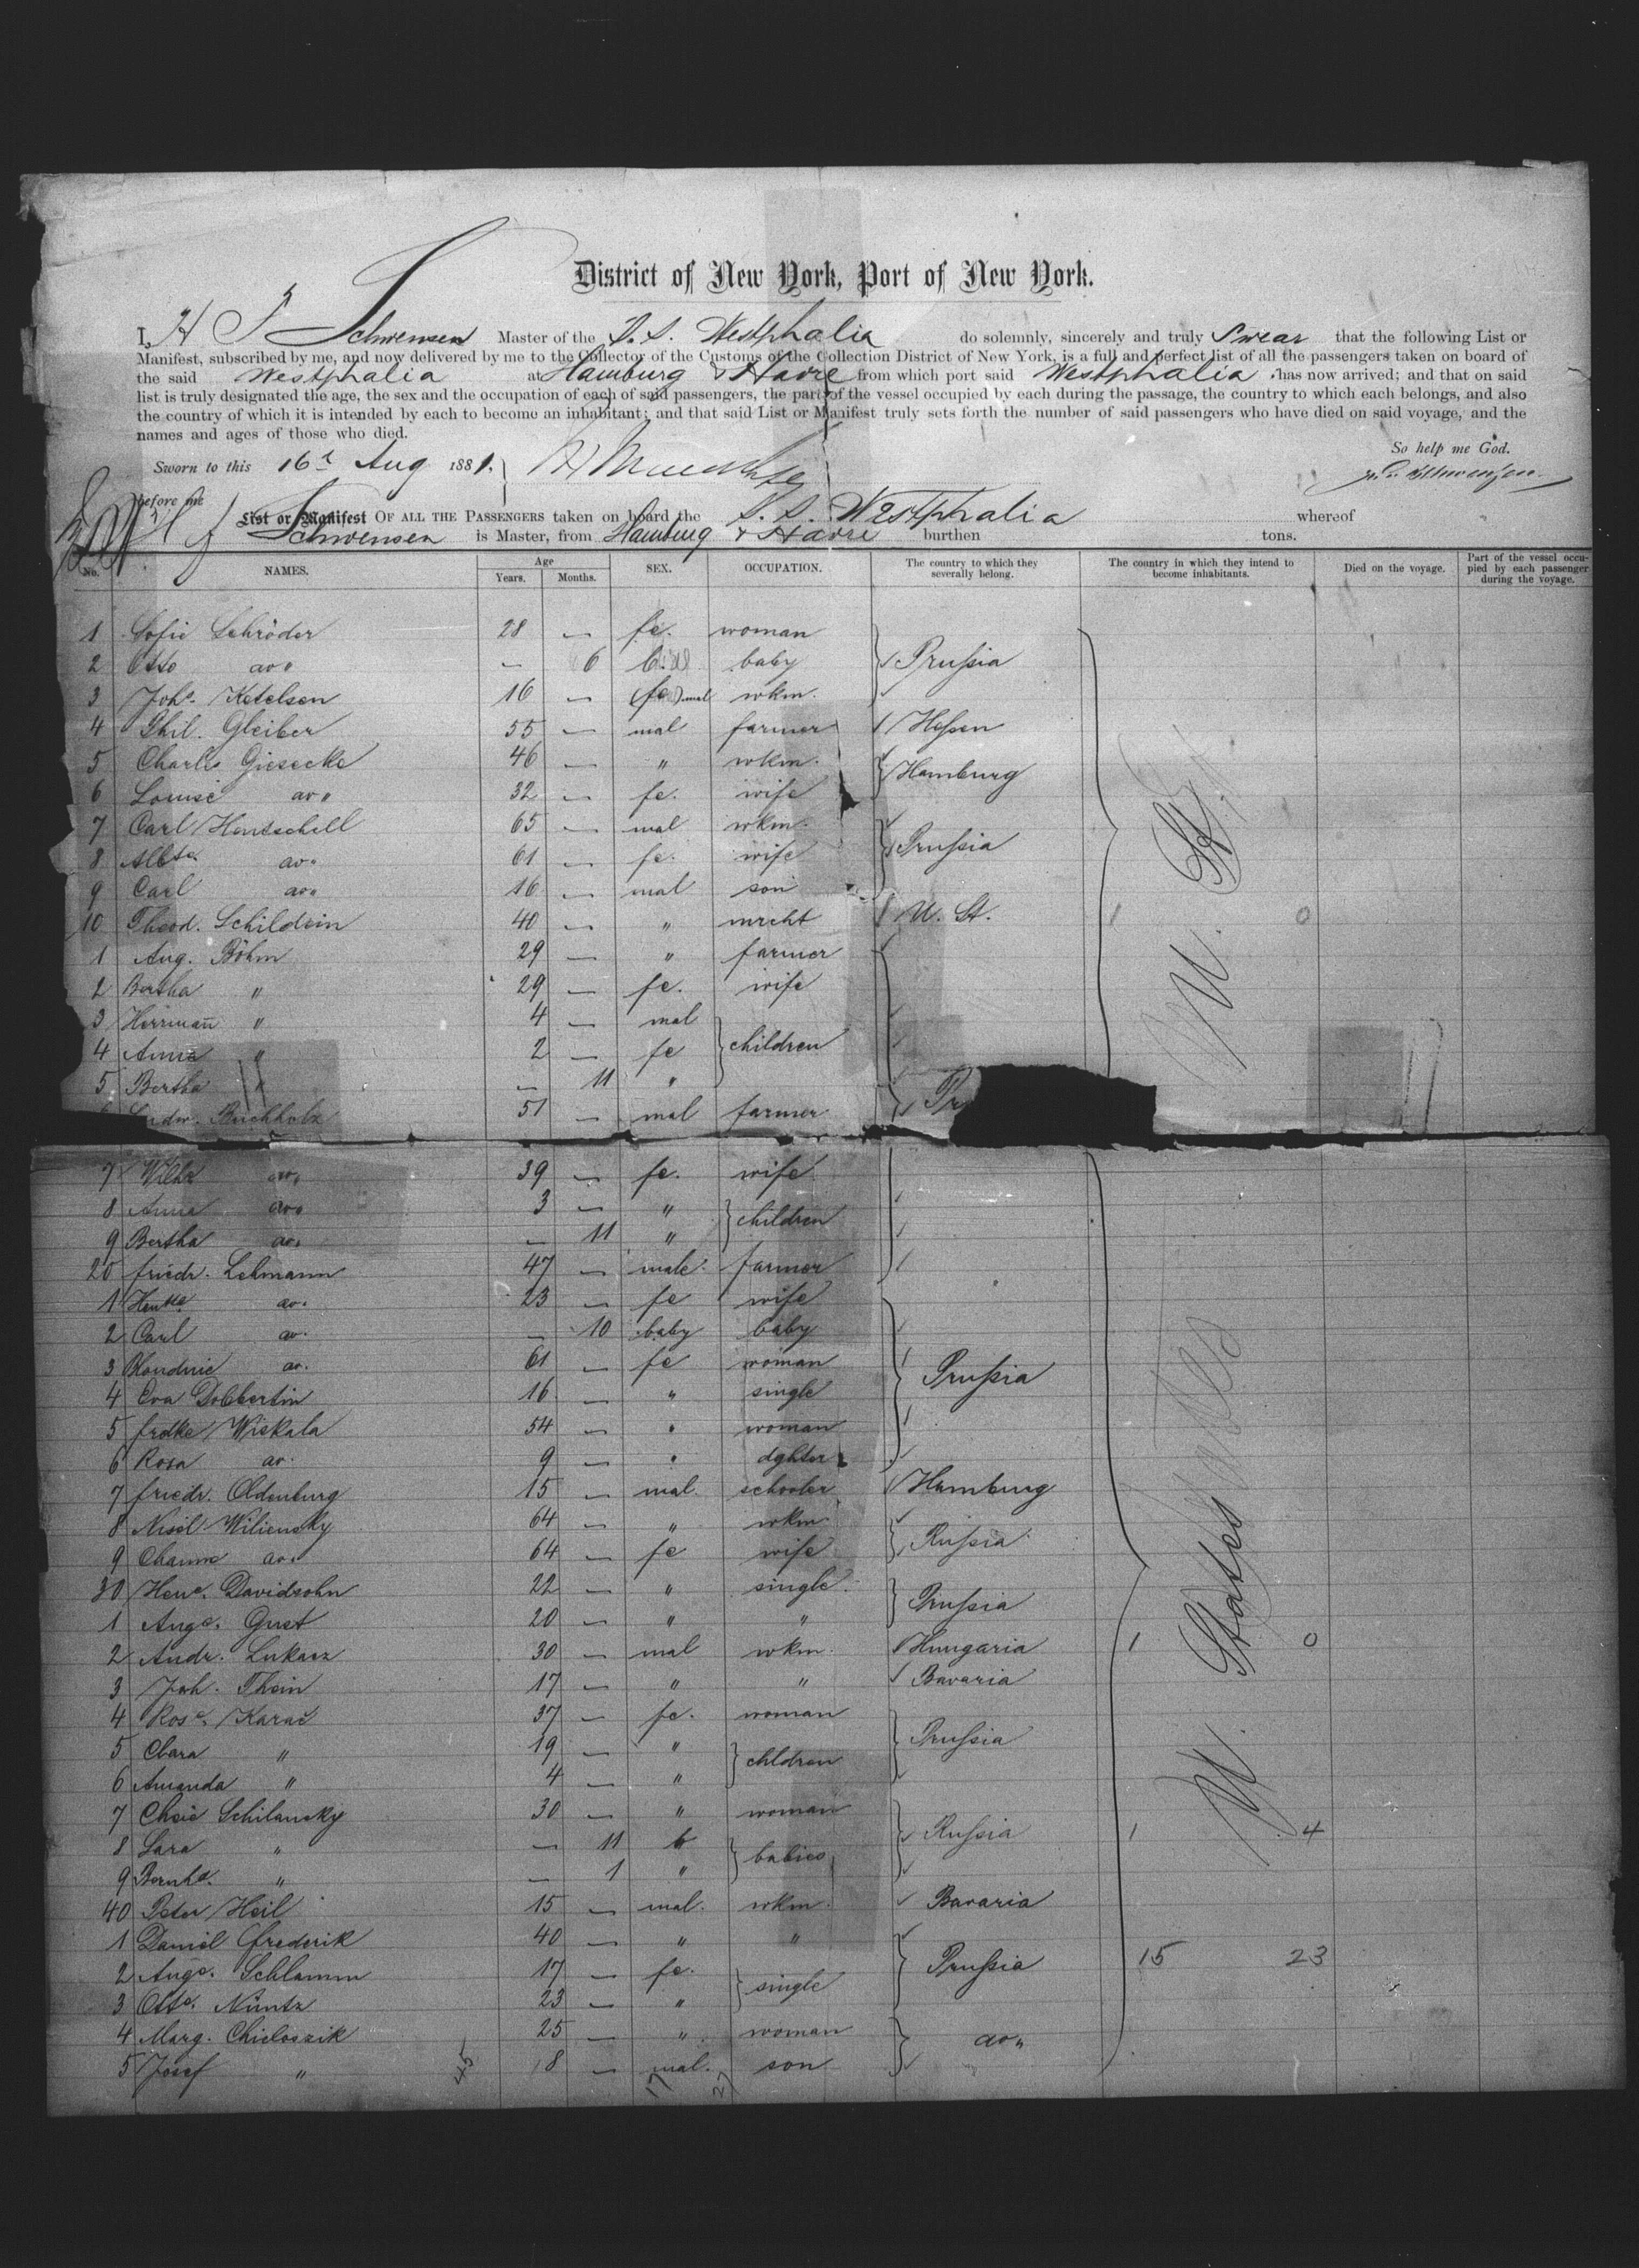 District of New York, Port of New York.
I, H F Schwensen Master of the S. S. Westphalia do solemnly, sincerely and truly Swear that the following List or
Manifest, subscribed by me, and now delivered by me to the Collector of the Customs of the Collection District of New York, is a full and perfect list of all the passengers taken on board of
the said Westphalia at Hamburg & Havre from which port said Westphalia has now arrived; and that on said
list is truly designated the age, the sex and the occupation of each of said passengers, the part of the vessel occupied by each during the passage, the country to which each belongs, and also
the country of which it is intended by each to become an inhabitant; and that said List or Manifest truly sets forth the number of said passengers who have died on said voyage, and the
names and ages of those who died.
So help me God.
Sworn to this 16th Aug 1881.
before me
List or Manifest OF ALL THE PASSENGERS taken on board the S. S. Westphalia whereof
H F Schwensen is Master, from Hamburg & Havre burthen tons.
No. NAMES. Age Years. Months. SEX. OCCUPATION. The country to which they severally belong. The country in which they intend to become inhabitants. Died on the voyage. Part of the vessel occupied by each passenger during the voyage.
1 Sofie Schröder 28 — fe. woman
2 Otto do " — 6 b. baby Prußia
3 Johs. Ketelsen 16 — (fe.) mal wkm.
4 Phil. Gleiber 55 — mal farmer Heßen
5 Charles Giesecke 46 — " wkm. Hamburg
6 Louise do " 32 — fe. wife
7 Carl Hentschell 65 — mal wkm.
8 Albte. do " 61 — fe. wife Prußia
9 Carl do " 16 — mal son
10 Theod. Schildein 40 — " mrcht U. St. 1 0
1 Aug. Böhm 29 — " farmer
2 Bertha " 29 — fe. wife
3 Herrmañ " 4 — mal
4 Anna " 2 — fe children
5 Bertha " — 11 "
Ludw. Buchholz 51 — mal farmer Pr
7 Wilhe do " 39 — fe. wife
8 Anna do " 3 — "
9 Bertha do " — 11 " children
20 Friedr. Lehmann 47 — male. farmer
1 Hentte do " 23 — fe wife
2 Carl do " — 10 baby baby
3 do " 61 — fe woman Prußia
4 Eva Dobbertin 16 — " single
5 Frdke Wiskala 54 — " woman
6 Rosa do " 9 — " dghter
7 Friedr. Oldenburg 15 — mal. schooler Hamburg
8 Nisöl Wiliensky 64 — " wkm. Rußia
9 Channe do " 64 — fe wife
30 Hene. Davidsohn 22 — " single Prußia
1 Auge. Gust 20 — " "
2 Andr. Lukacz 30 — mal wkm. Hungaria 1 0
3 Joh. Thein 17 — " " Bavaria
4 Rosa. Karac 37 — fe. woman
5 Clara " 19 — " chldren Prußia
6 Amanda " 4 — "
7 Chaie Schilansky 30 — " woman
8 Sara " — 11 b babies Rußia 1 4
9 Bernhd. " — 1 "
40 Peter Heil 15 — mal. wkm. Bavaria
1 Daniel Frederik 40 — " "
2 Auge. Schlamm 17 — fe. single Prußia 15 23
3 Otto. Nüntz 23 — "
4 Marg. Chieloszik 25 — " woman do "
5 Josef " 18 — mal. son
45 17 27
U. St.
U. States
United